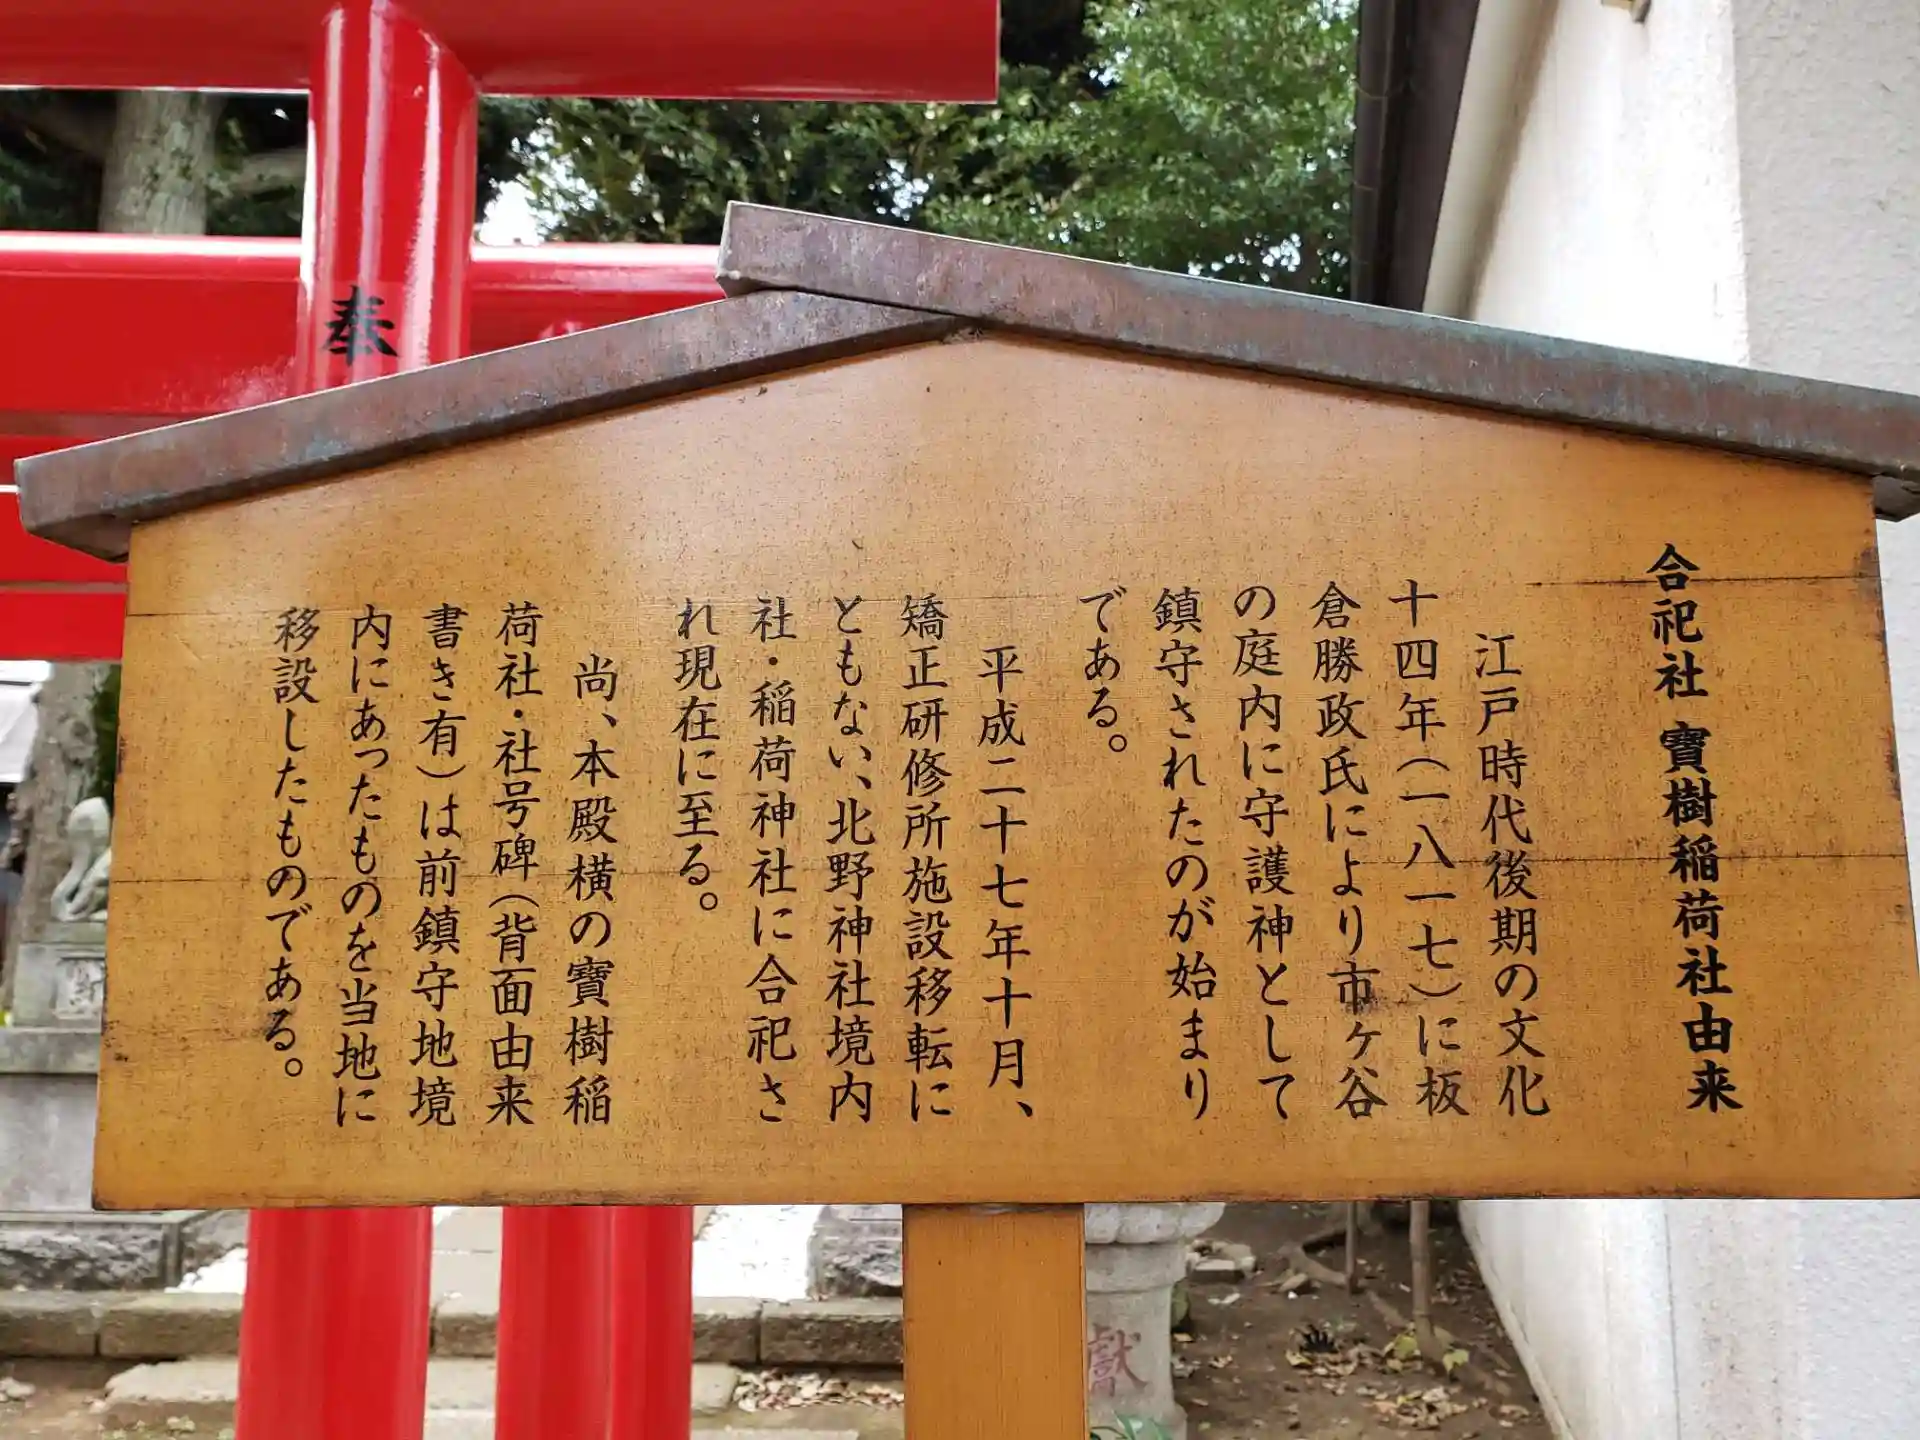 合祀社 寶樹稲荷社由来
江戸時代後期の文化
十四年(一八一七)に板
倉勝政氏により市ヶ谷
の庭内に守護神として
鎮守されたのが始まり
である。
平成二十七年十月、
矯正研修所施設移転に
ともない、北野神社境内
社・稲荷神社に合祀さ
れ現在に至る。
尚、本殿横の寶樹稲
荷社・社号碑(背面由来
書き有)は前鎮守地境
内にあったものを当地に
移設したものである。
奉
献